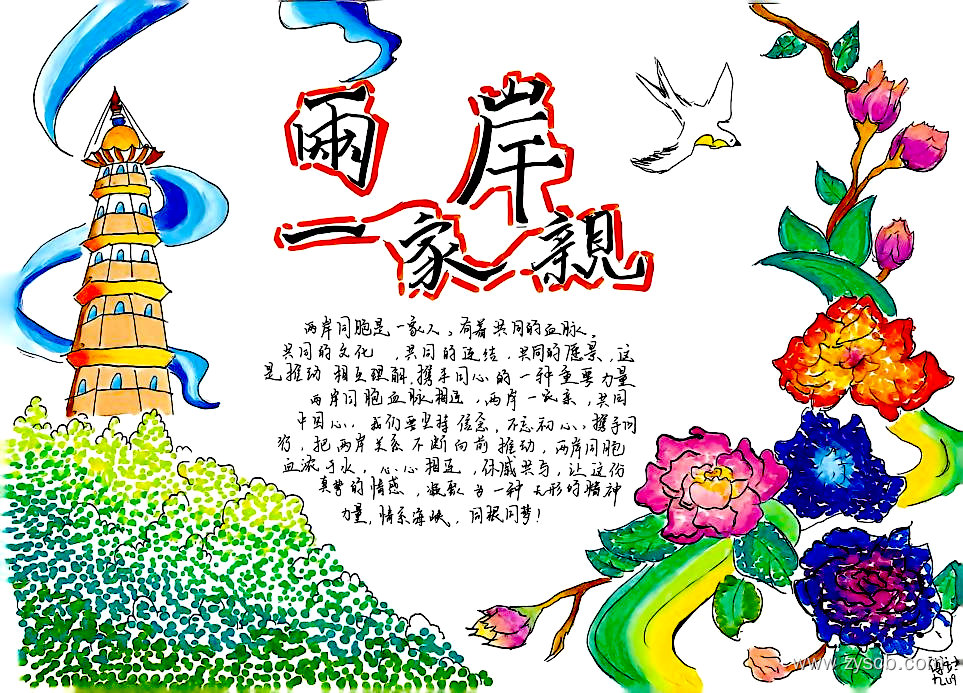 兩岸
一家親
两岸同胞是一家人，有着共同的血脉。
共同的文化，共同的连结，共同的愿景，这
是推动相互理解，携手同心的一种重要力量
两岸同胞血脉相连，两岸一家亲，共同
中国心，我们要坚持信念，不忘初心，携手同
行，把两岸关系不断向前推动，两岸同胞
血浓于水，心心相连，休戚共与，让这份
真挚的情感，凝聚为一种无形的精神
力量，情系海峡，同根同梦！
www.zysdb.com